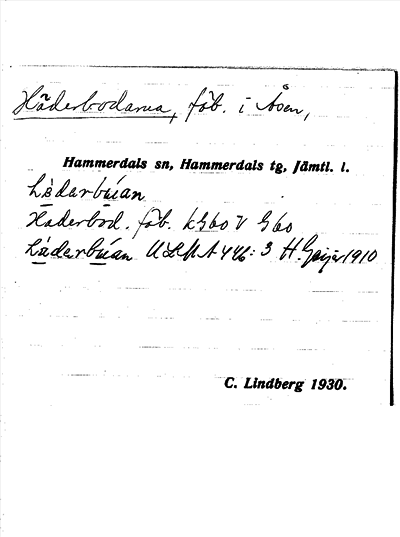 Häderbodarna, fäb. i Åsen,
Hammerdals sn, Hammerdals tg, Jämtl. l.
hädarbúan
Häderbod. fäb. k G60 V G60
hädarbúan ULMA 446:3 H. Geijer 1910
C. Lindberg 1930.